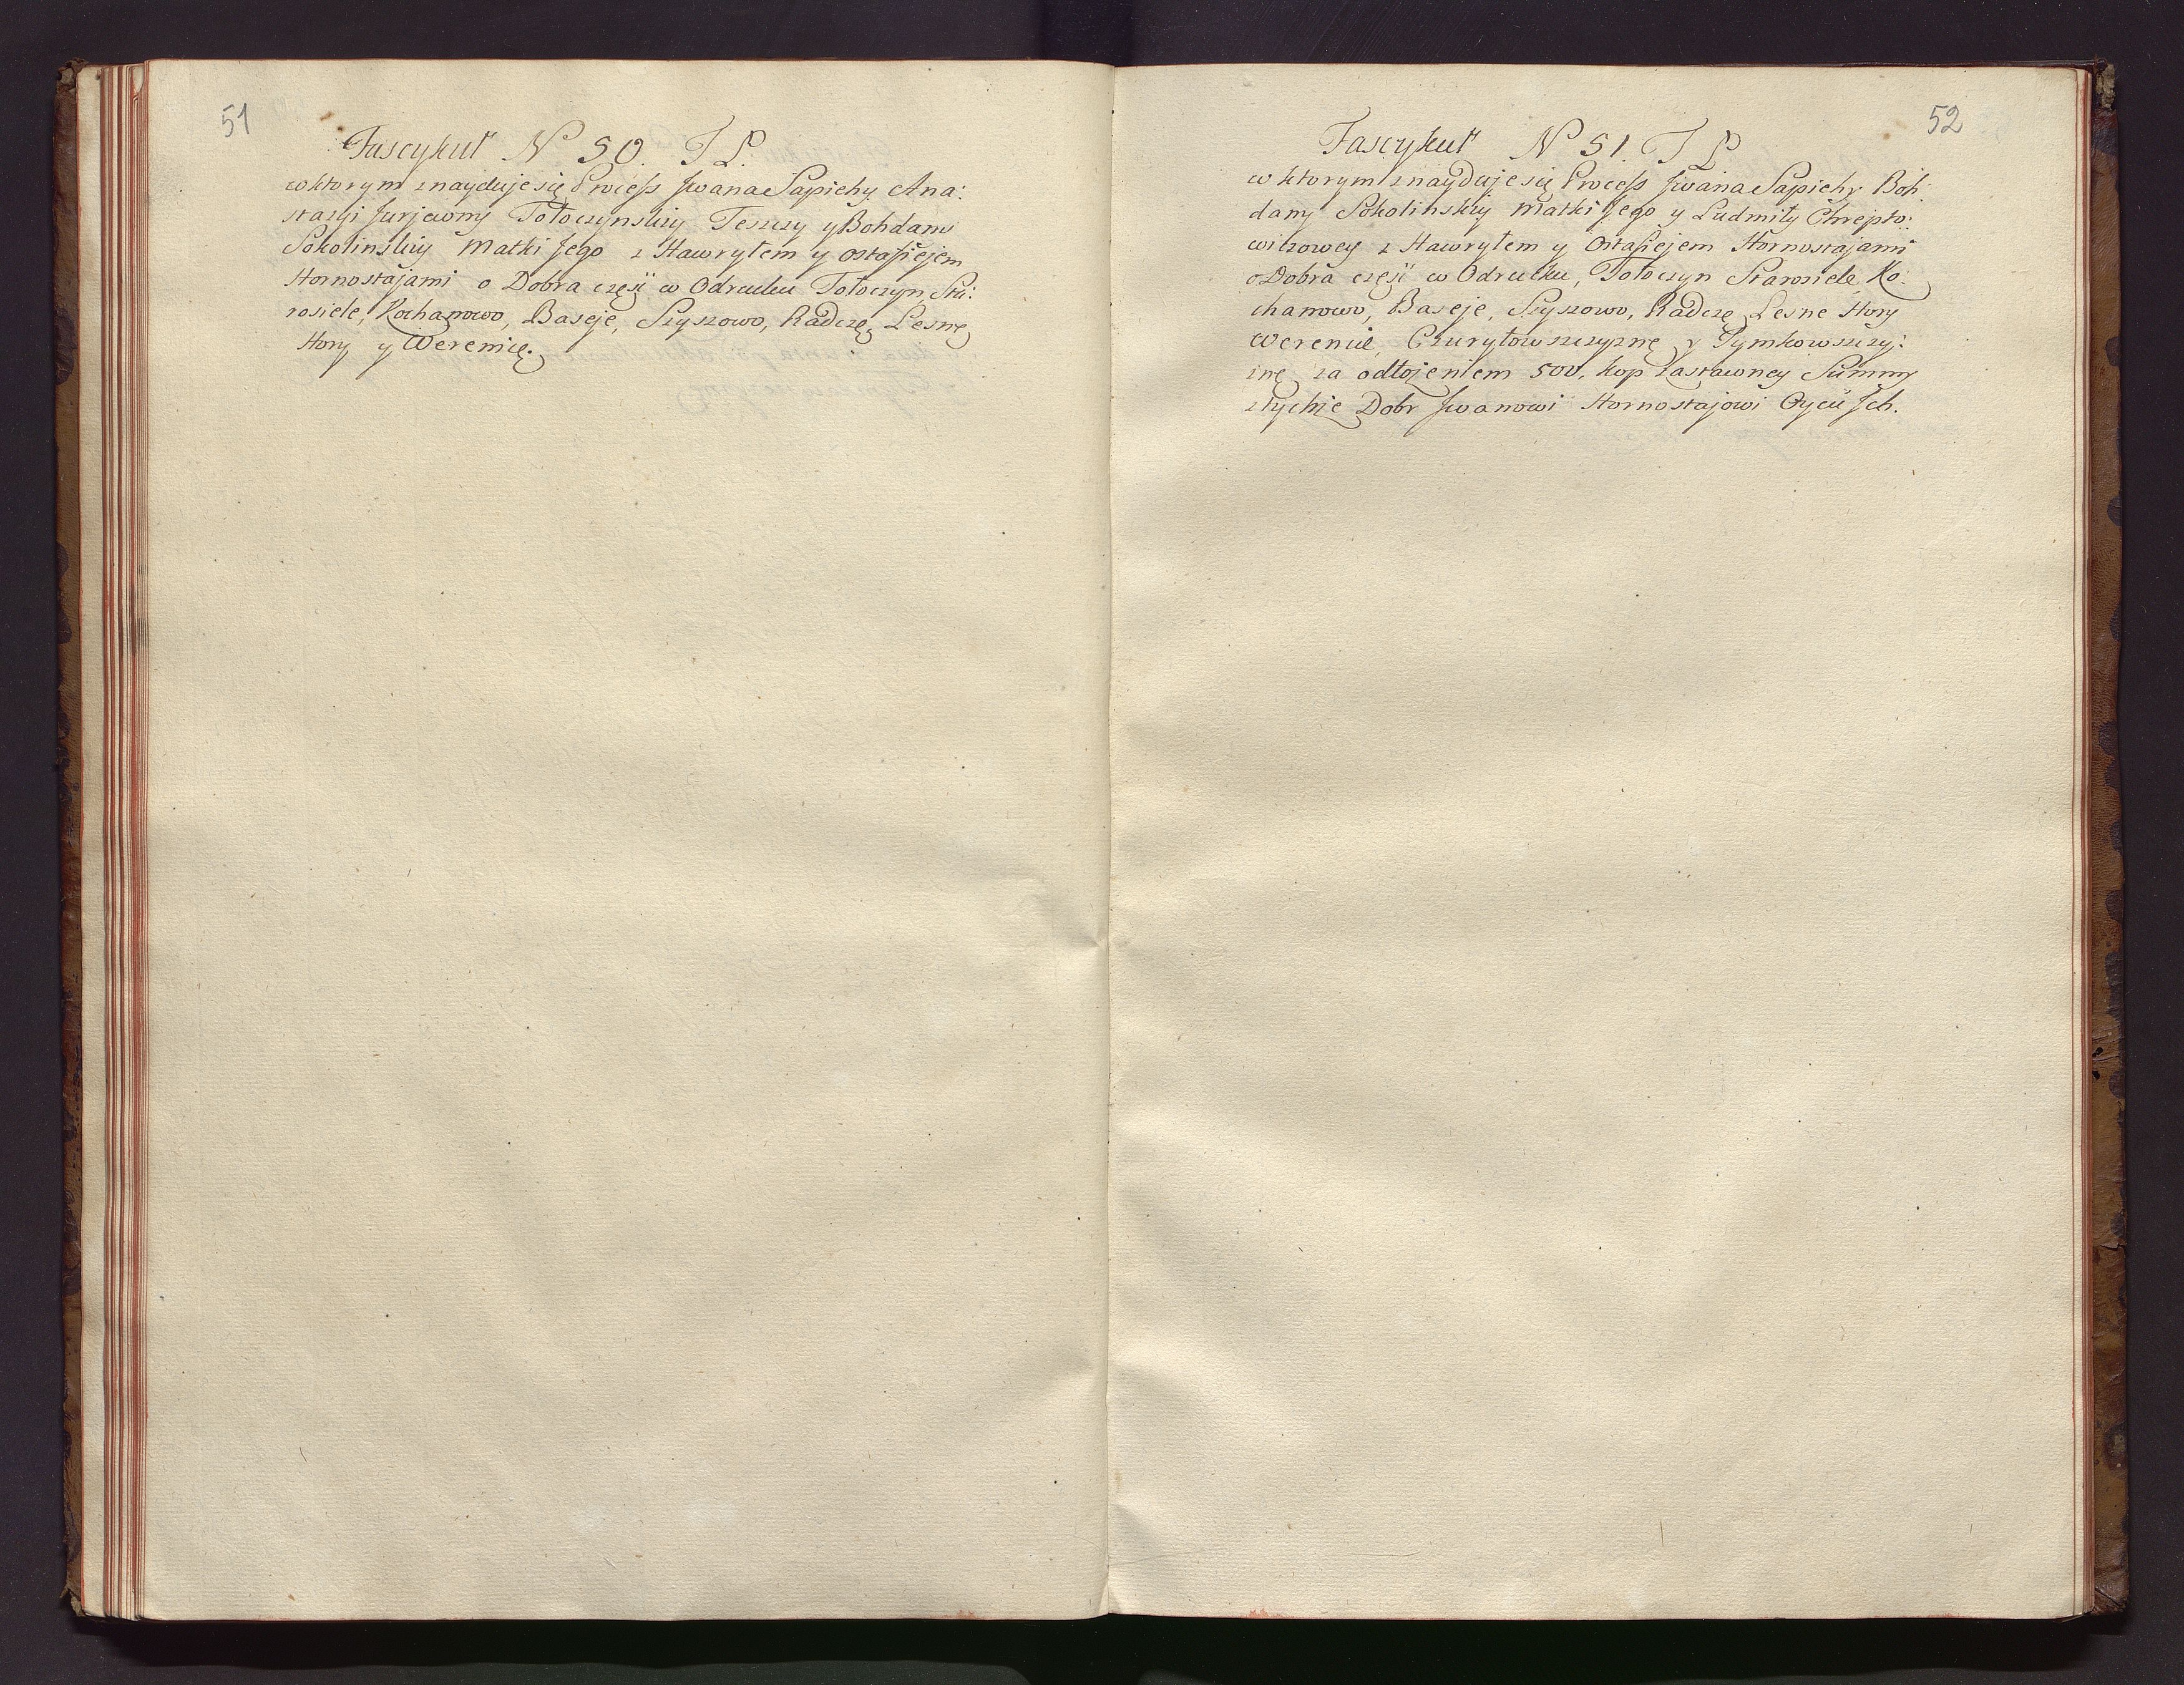 51
Fascykuł N 50. T L.
w ktorym znayduje się Process Jwana Sapiehy, Ana:
stazyi Jurjewny Tołoczynskiy Teszczy y Bohdany
Sokolinskiy Matki Jego z Hawryłem y Ostafiejem
Hornostajami o Dobra częśł w Odrucku Tołoczyn, Sta:
rosiele, Kochanowo, Baseje, Szyszowo, Radczę, Lesne
Hory y Werenię.
52
Fascykuł N 51. T L
w ktorym znayduje się Process Jwana Sapiehy Boh:
dany Sokolinskiy Matki Jego y Ludmiły Chrepto:
wiczowey z Hawryłem y Ostafiejem Hornostajami
o Dobra częśł w Odrucku, Tołoczyn Starosiele, Ko:
chanowo, Baseje, Szyszowo, Radczę Lesne Hory
Werenie, Czuryłowszczyznę y Tymkowszczy:
znę za odłożeniem 500. kop zastawney Summy
z tychże Dobr Jwanowi Hornostajowi Oycu Jch.